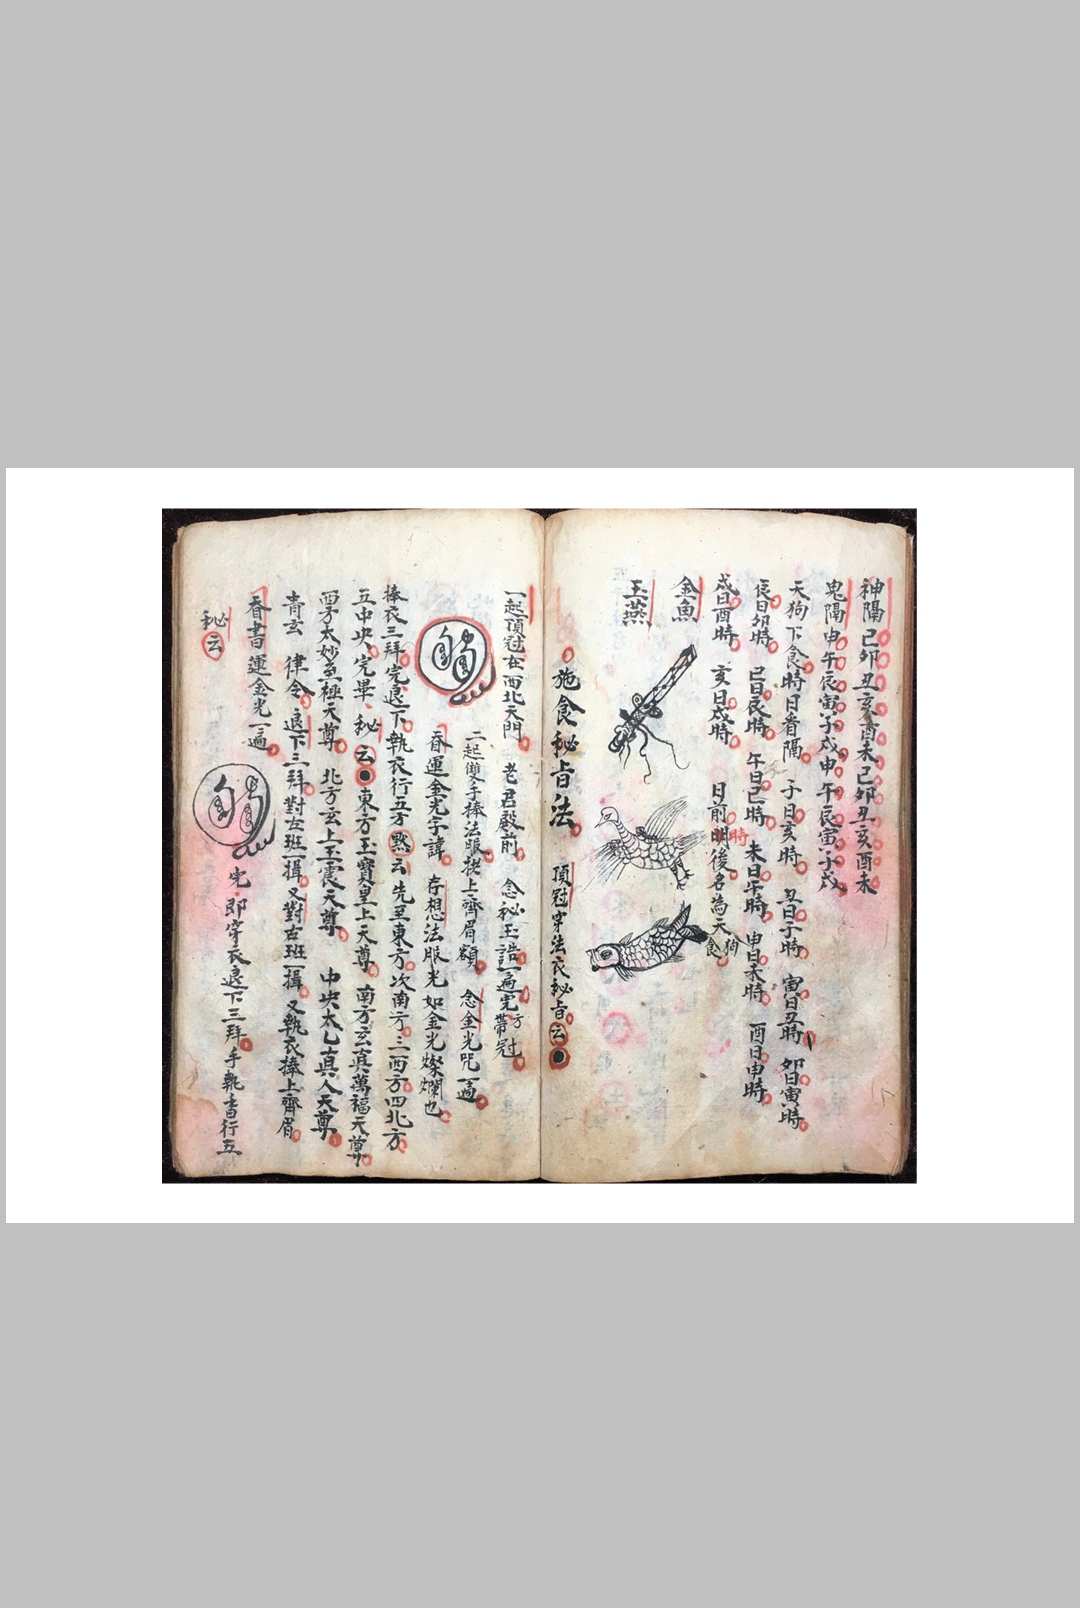 神隔 巳卯丑亥酉未巳卯丑亥酉未
鬼隔 申午辰寅子戌申午辰寅子戌
天狗下食時日看隔 子日亥時 丑日子時 寅日丑時 卯日寅時
辰日卯時 巳日辰時 午日巳時 未日午時 申日未時 酉日申時
戌日酉時 亥日戌時 日前時明後名為天狗食
金魚
玉燕
施食秘旨法 頂冠穿法衣秘旨云
一起頂冠在西北天門 老君殿前 念秘玉誥一遍完方帶冠
二起雙手捧法服挠上齊眉額 念金光咒一遍
香運金光子諱 存想法服光如金光燦爛也
捧衣三拜完退下執衣行五方 默云 先至東方次南方三西方四北方
五中央完畢 秘云 東方玉寶皇上天尊 南方玄真萬福天尊
西方太妙至極天尊 北方玄上玉宸天尊 中央太乙真人天尊
青玄 律令 退下三拜對左班一揖又對右班一揖 又執衣捧上齊眉
香書運金光一遍 完 即穿衣退下三拜 手執香行五
秘云